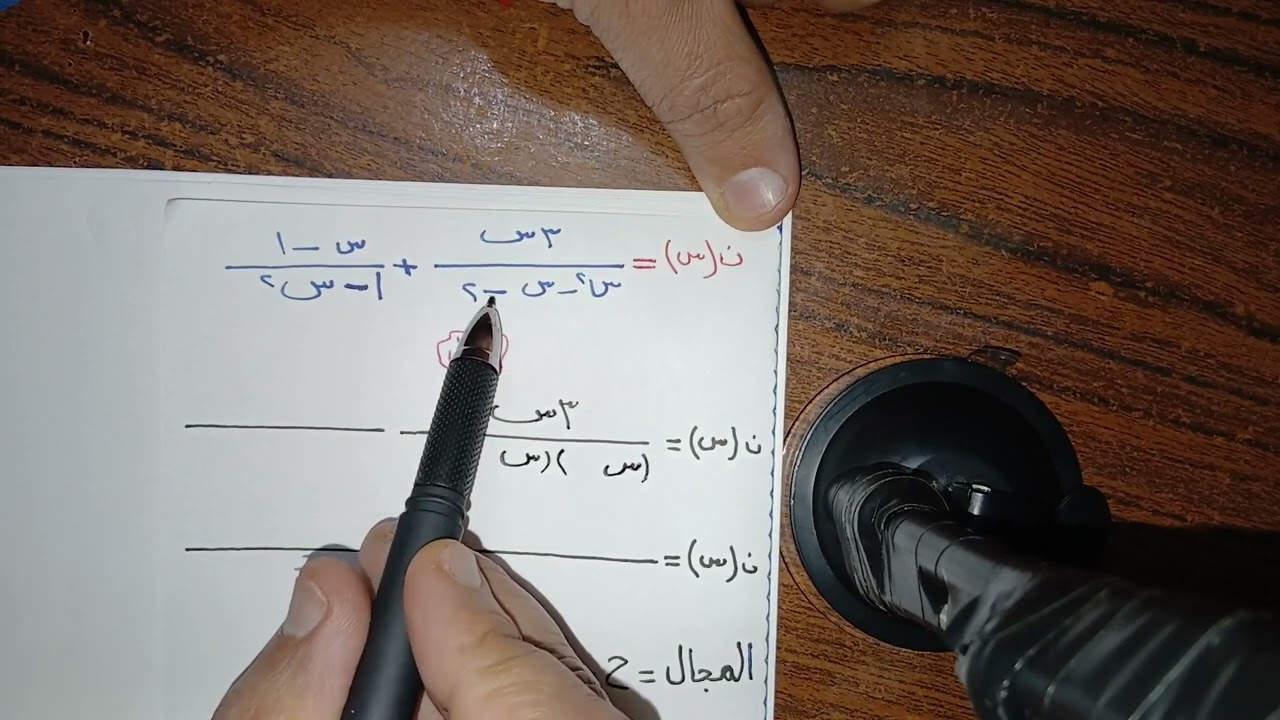 ن(س) = ٣س / س٢ - س - ٢ + س - ١ / ١ - س٢
ن(س) = ٣س / (س )(س
ن(س) =
المجال = ح